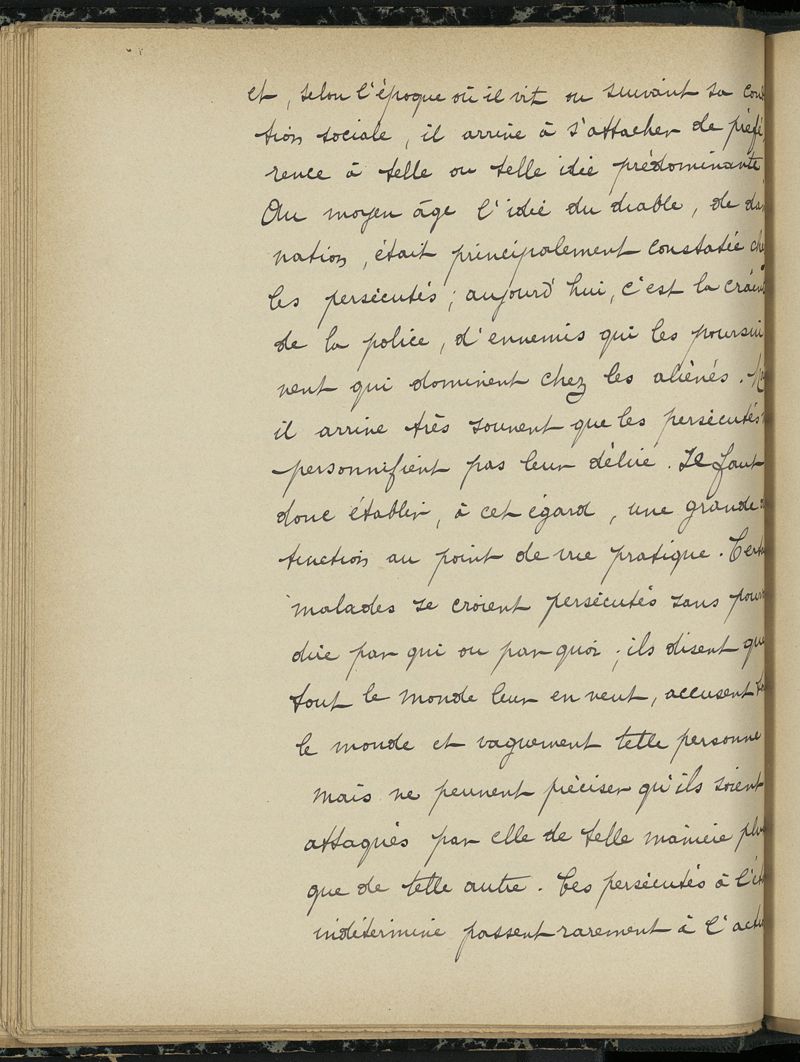 et, selon l'époque où il vit ou suivant sa con
tion sociale, il arrive à s'attacher de préfé
rence à telle ou telle idée prédominante.
Au moyen âge l'idée du diable, de da
nation, était principalement constatée che
les persécutés ; aujourd'hui, c'est la crain
de la police, d'ennemis qui les poursui
vent qui dominent chez les aliénés.
il arrive très souvent que les persécutés
personnifient pas leur délire. Il faut
donc établir, à cet égard, une grande
tinction au point de vue pratique. Cert
malades se croient persécutés sans pouv
dire par qui ou par quoi ; ils disent que
tout le monde leur en veut, accusent
le monde et vaguement telle personne
mais ne peuvent préciser qu'ils soient
attaqués par elle de telle manière plu
que de telle autre. Ces persécutés à l'ét
indéterminé passent rarement à l'acti